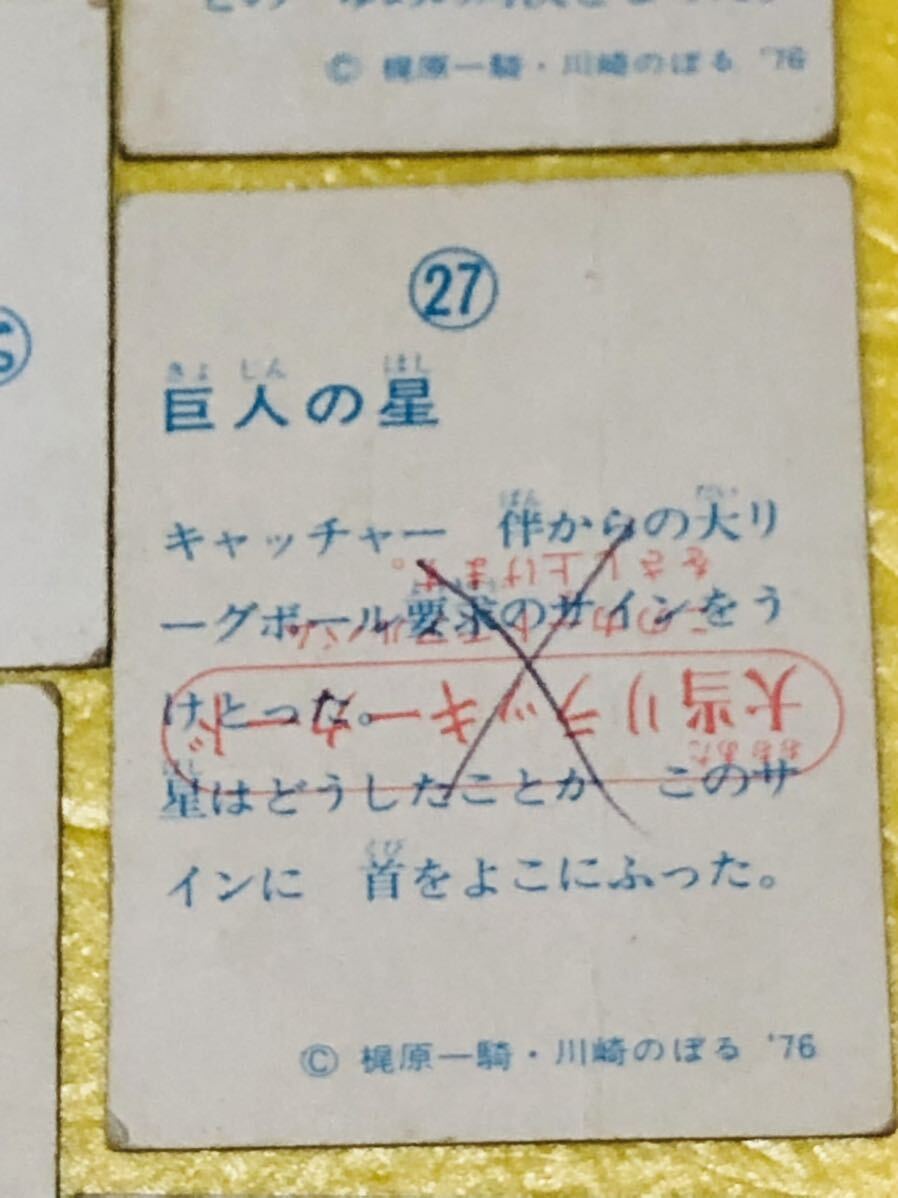 © 梶原一騎・川崎のぼる '76
27
巨人の星
キャッチャー 伴からの大リ
ーグボール要求のサインをう
けとった。
星はどうしたことか このサ
インに 首をよこにふった。
大当りラッキーカード
をさし上げます。
© 梶原一騎・川崎のぼる '76